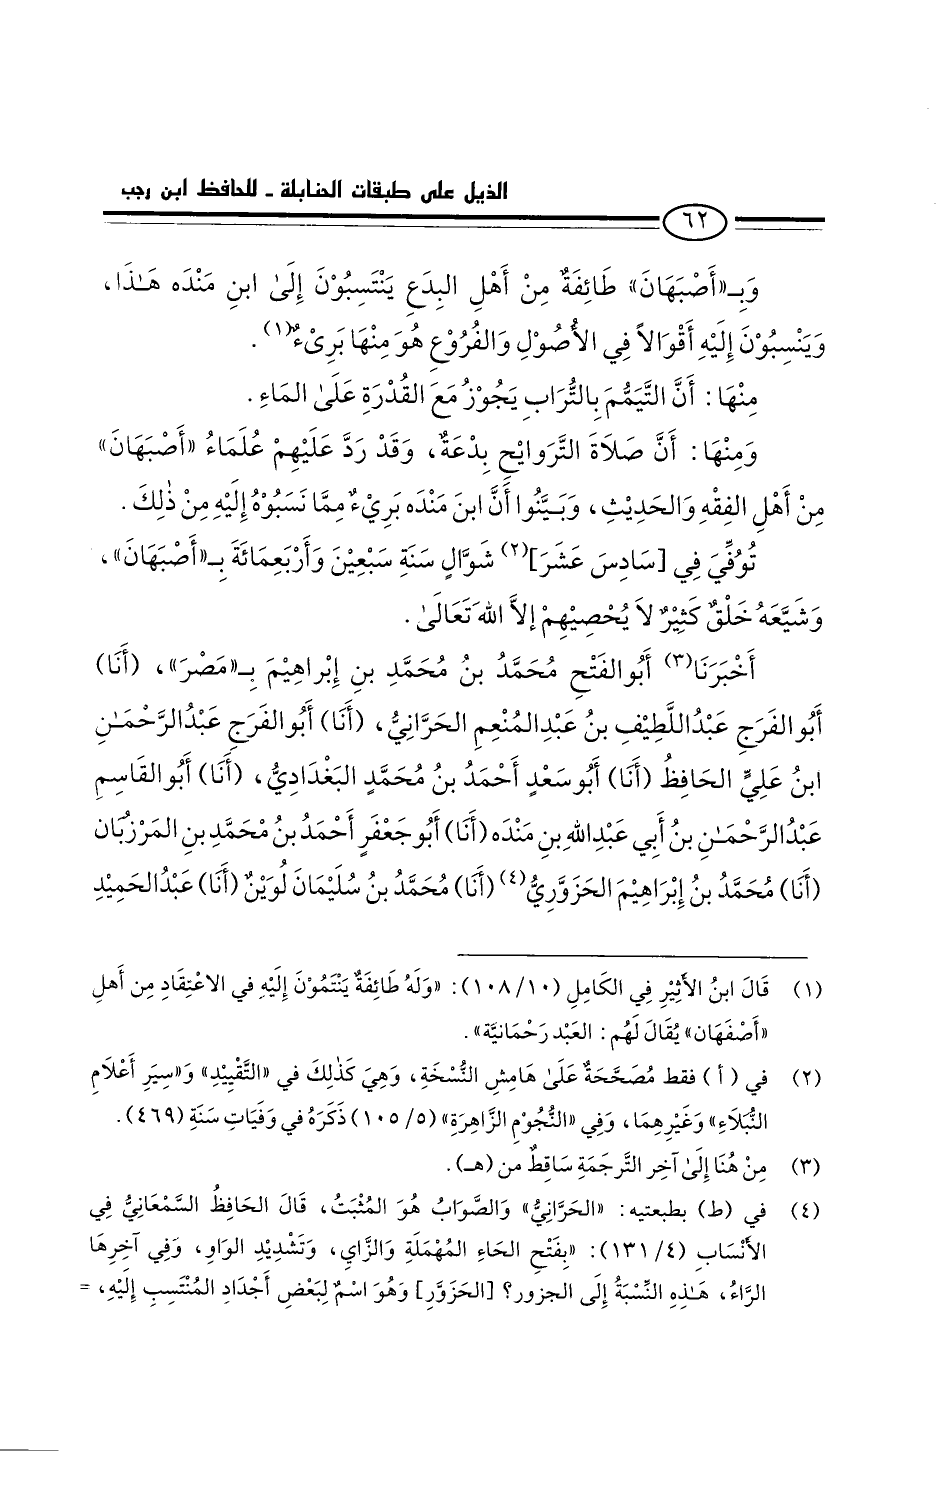 الذيل على طبقات الحنابلة - للحافظ ابن رجب
٦٢
وَبِـ«أَصْبَهَانَ» طَائِفَةٌ مِنْ أَهْلِ البِدَعِ يَنْتَسِبُوْنَ إِلَىٰ ابنِ مَنْدَه هَـٰذَا،
وَيَنْسِبُوْنَ إِلَيْهِ أَقْوَالاً فِي الأُصُوْلِ وَالفُرُوْعِ هُوَ مِنْهَا بَرِيْءٌ(١).
مِنْهَا: أَنَّ التَّيَمُّمَ بِالتُّرَابِ يَجُوْزُ مَعَ القُدْرَةِ عَلَىٰ المَاءِ.
وَمِنْهَا: أَنَّ صَلَاةَ التَّروَايْحِ بِدْعَةٌ، وَقَدْ رَدَّ عَلَيْهِمْ عُلَمَاءُ «أَصْبَهَانَ»
مِنْ أَهْلِ الفِقْهِ وَالحَدِيْثِ، وَبَيَّنُوا أَنَّ ابنَ مَنْدَه بَرِيْءٌ مِمَّا نَسَبُوْهُ إِلَيْهِ مِنْ ذٰلِكَ.
تُوُفِّيَ فِي [سَادِسَ عَشَرَ](٢) شَوَّالٍ سَنَةِ سَبْعِيْنَ وَأَرْبَعِمَائَةَ بِـ«أَصْبَهَانَ»،
وَشَيَّعَهُ خَلْقٌ كَثِيْرٌ لاَ يُحْصِيْهِمْ إِلاَّ اللهَ تَعَالَىٰ.
أَخْبَرَنَا(٣) أَبُو الفَتْحِ مُحَمَّدُ بنُ مُحَمَّدِ بنِ إِبْراهِيْمَ بِـ«مَصْرَ»، (أَنَا)
أَبُو الفَرَجِ عَبْدُ اللَّطِيْفِ بنُ عَبْدِ المُنْعِمِ الحَرَّانِيُّ، (أَنَا) أَبُو الفَرَجِ عَبْدُ الرَّحْمَـٰنِ
ابنُ عَلِيٍّ الحَافِظُ (أَنَا) أَبُو سَعْدٍ أَحْمَدُ بنُ مُحَمَّدٍ البَغْدَادِيُّ، (أَنَا) أَبُو القَاسِمِ
عَبْدُ الرَّحْمَـٰنِ بنُ أَبِي عَبْدِ اللهِ بنِ مَنْدَه (أَنَا) أَبُو جَعْفَرٍ أَحْمَدُ بنُ مُحَمَّدِ بنِ المَرْزُبَان
(أَنَا) مُحَمَّدُ بنُ إِبْرَاهِيْمَ الحَزَوَّرِيُّ(٤) (أَنَا) مُحَمَّدُ بنُ سُلَيْمَانَ لُوَيْنٌ (أَنَا) عَبْدُ الحَمِيْدِ
(١) قَالَ ابنُ الأَثِيْرِ فِي الكَامِلِ (١٠٨/١٠): «وَلَهُ طَائِفَةٌ يَنْتَمُوْنَ إِلَيْهِ في الاعْتِقَادِ مِن أَهلِ
«أَصْفَهَان» يُقَالَ لَهُم: العَبْد رَحْمَانِيَّة».
(٢) في (أ) فقط مُصَحَّحَةٌ عَلَىٰ هَامِشِ النُّسْخَةِ، وَهِيَ كَذٰلِكَ في «التَّقْيِيْدِ» وَ«سِيَرِ أَعْلَامِ
النُّبَلَاءِ» وَغَيْرِهِمَا، وَفِي «النُّجُوْمِ الزَّاهِرَةِ» (١٠٥/٥) ذَكَرَهُ في وَفَيَاتِ سَنَةِ (٤٦٩).
(٣) مِنْ هُنَا إِلَىٰ آخِرِ التَّرجَمَةِ سَاقِطٌ من (هـ).
(٤) في (ط) بطبعتيه: «الحَرَّانِيُّ» وَالصَّوَابُ هُوَ المُثْبَتُ، قَالَ الحَافِظُ السَّمْعَانِيُّ فِي
الأَنْسَابِ (١٣١/٤): «بِفَتْحِ الحَاءِ المُهْمَلَةِ وَالزَّايِ، وَتَشْدِيْدِ الوَاوِ، وَفِي آخِرِهَا
الرَّاءُ، هَـٰذِهِ النِّسْبَةُ إِلَى الجزور؟ [الحَزَوَّرِ] وَهُوَ اسْمٌ لِبَعْضِ أَجْدَادِ المُنْتَسِبِ إِلَيْهِ، =